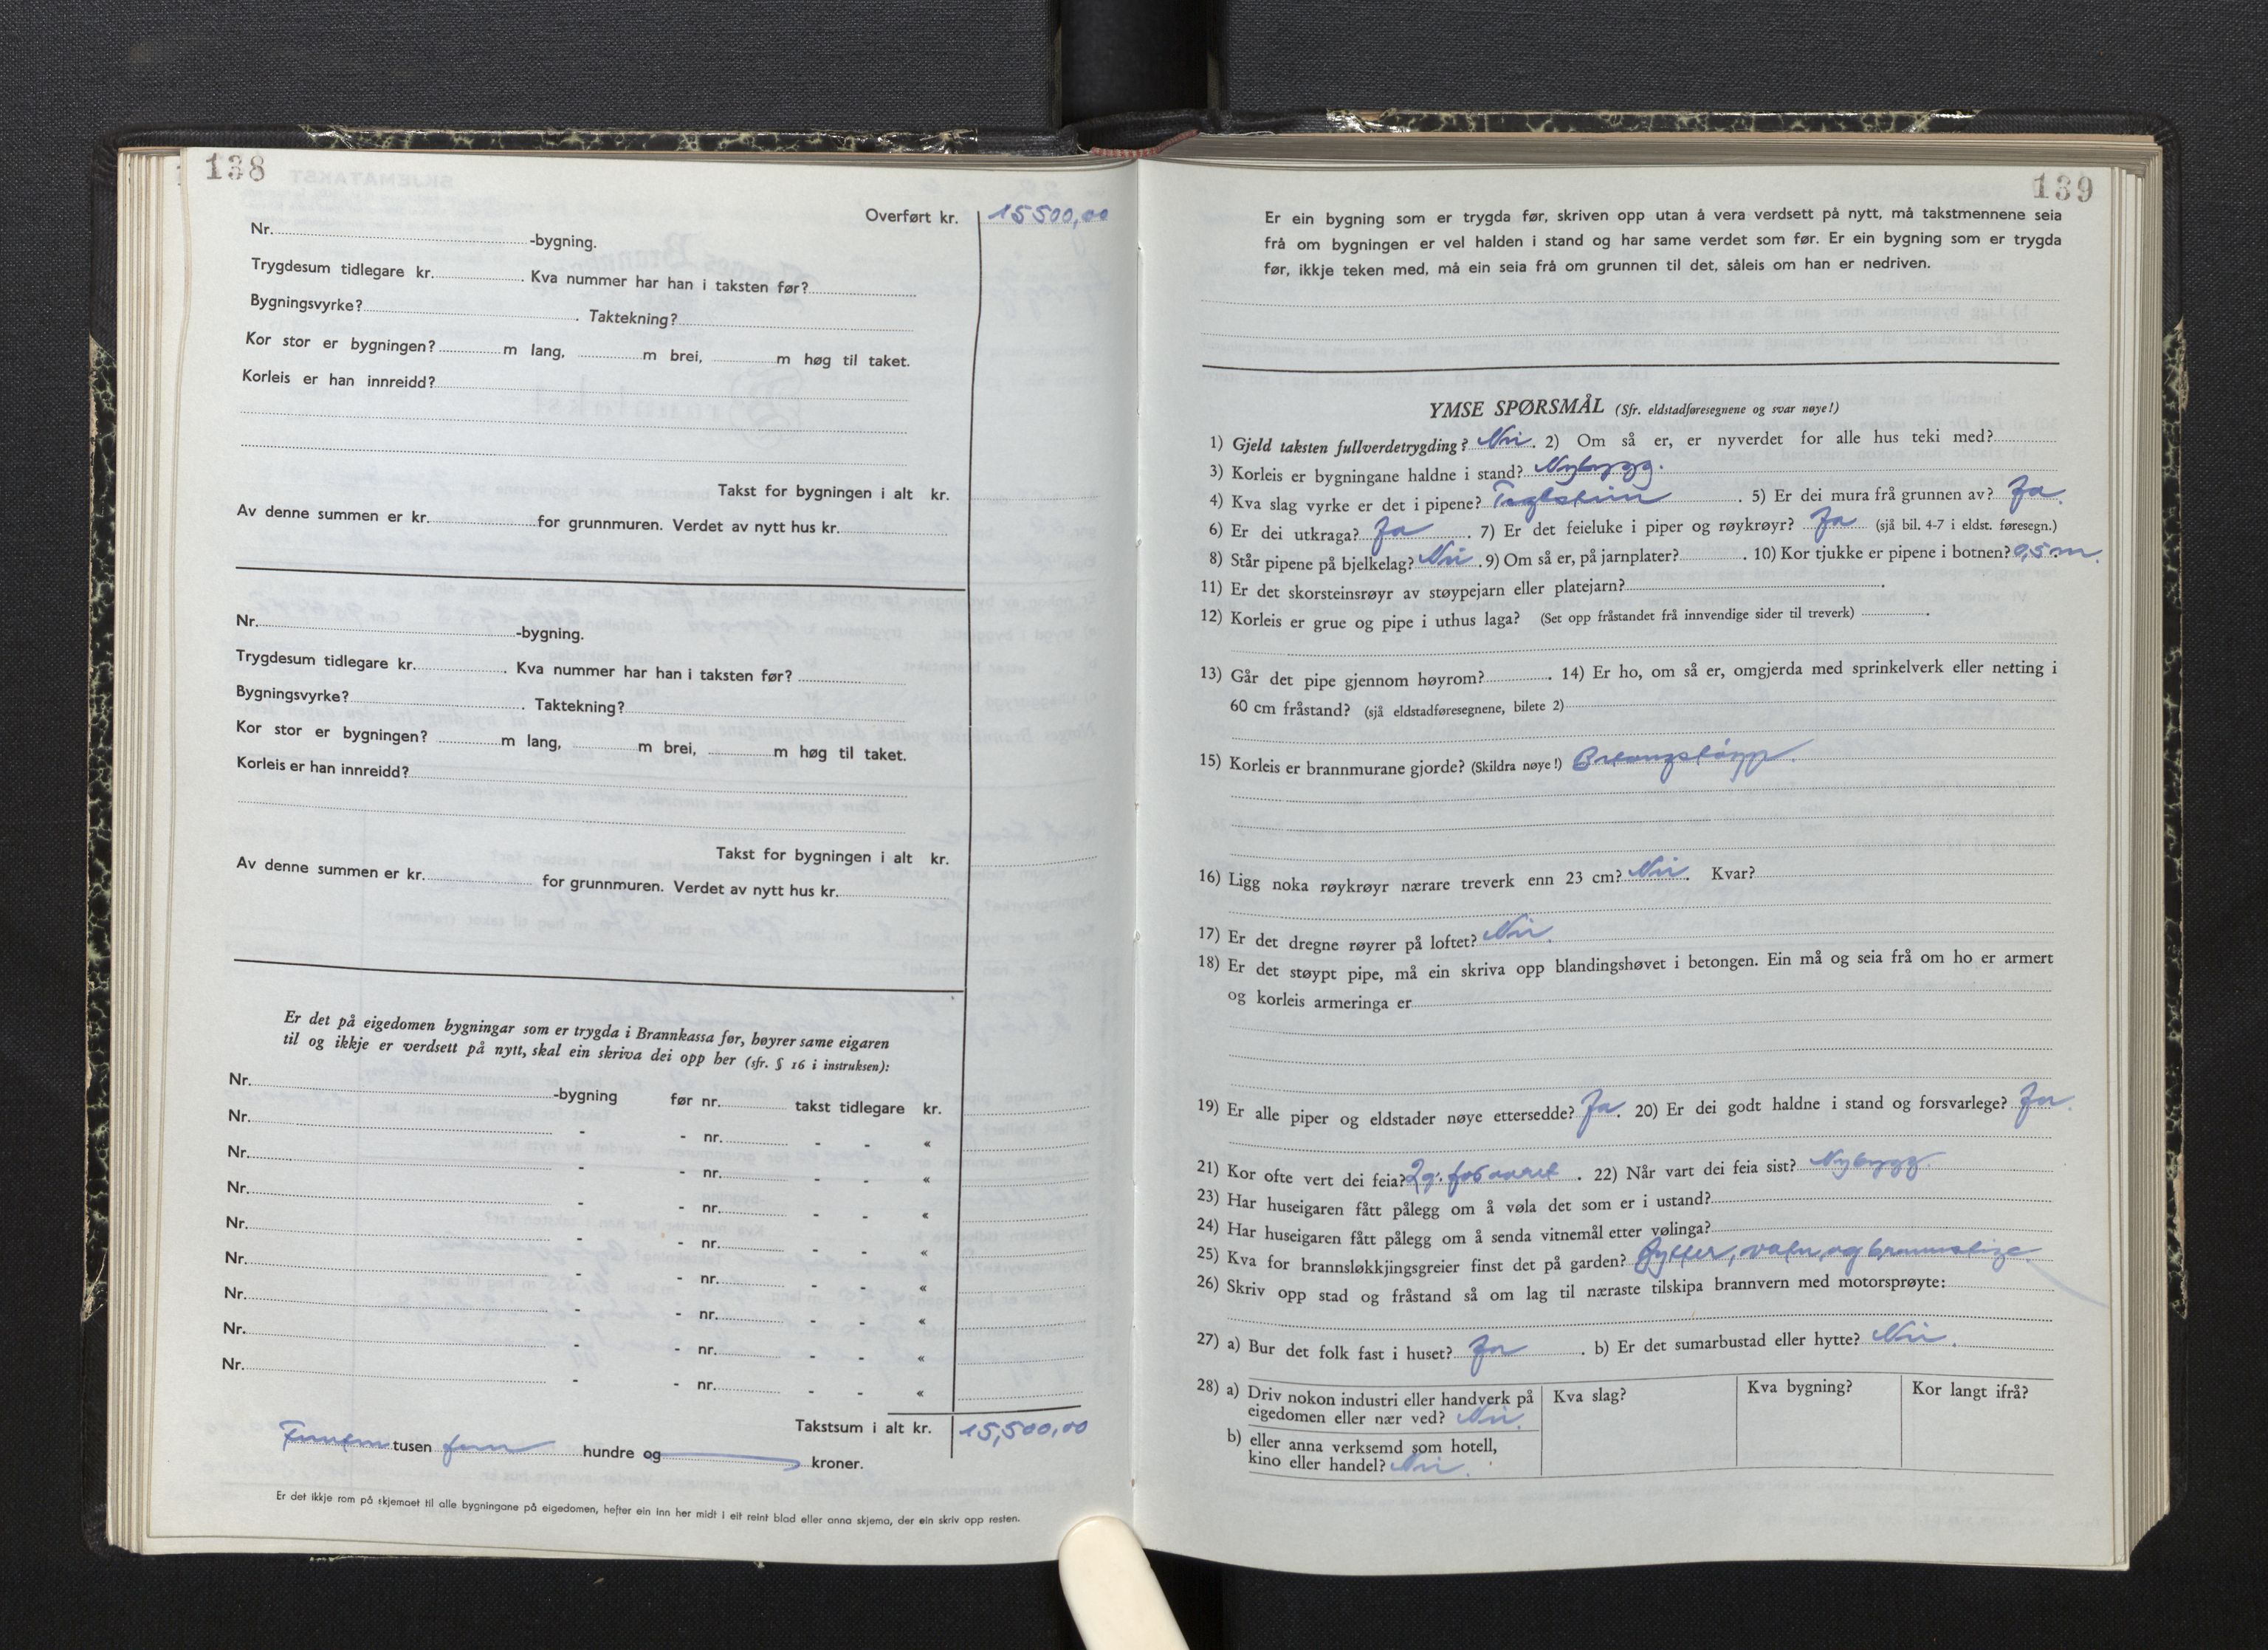 138
Overført kr. 15500,00
Nr. -bygning.
Trygdesum tidlegare kr. . Kva nummer har han i taksten før?
Bygningsvyrke? . Taktekning?
Kor stor er bygningen? m lang, m brei, m høg til taket.
Korleis er han innreidd?
Takst for bygningen i alt kr.
Av denne summen er kr. for grunnmuren. Verdet av nytt hus kr.
Nr. -bygning.
Trygdesum tidlegare kr. . Kva nummer har han i taksten før?
Bygningsvyrke? . Taktekning?
Kor stor er bygningen? m lang, m brei, m høg til taket.
Korleis er han innreidd?
Takst for bygningen i alt kr.
Av denne summen er kr. for grunnmuren. Verdet av nytt hus kr.
Er det på eigedomen bygningar som er trygda i Brannkassa før, høyrer same eigaren
til og ikkje er verdsett på nytt, skal ein skriva dei opp her (sfr. § 16 i instruksen):
Nr. -bygning før nr. takst tidlegare kr.
Nr. - - nr. - - «
Nr. - - nr. - - «
Nr. - - nr. - - «
Nr. - - nr. - - «
Nr. - - nr. - - «
Nr. - - nr. - - «
Nr. - - nr. - - «
Nr. - - nr. - - «
Takstsum i alt kr. 15,500,00
Femten tusen fem hundre og kroner.
Er det ikkje rom på skjemaet til alle bygningane på eigedomen, hefter ein inn her midt i eit reint blad eller anna skjema, der ein skriv opp resten.
139
Er ein bygning som er trygda før, skriven opp utan å vera verdsett på nytt, må takstmennene seia
frå om bygningen er vel halden i stand og har same verdet som før. Er ein bygning som er trygda
før, ikkje teken med, må ein seia frå om grunnen til det, såleis om han er nedriven.
YMSE SPØRSMÅL (Sfr. eldstadføresegnene og svar nøye!)
1) Gjeld taksten fullverdetrygding? Nei. 2) Om så er, er nyverdet for alle hus teki med?
3) Korleis er bygningane haldne i stand? Nybygg.
4) Kva slag vyrke er det i pipene? Teglstein . 5) Er dei mura frå grunnen av? Ja.
6) Er dei utkraga? Ja . 7) Er det feieluke i piper og røykrøyr? Ja (sjå bil. 4-7 i eldst. føresegn.)
8) Står pipene på bjelkelag? Nei . 9) Om så er, på jarnplater? . 10) Kor tjukke er pipene i botnen? 0,5 m.
11) Er det skorsteinsrøyr av støypejarn eller platejarn? .
12) Korleis er grue og pipe i uthus laga? (Set opp fråstandet frå innvendige sider til treverk) .
13) Går det pipe gjennom høyrom? . 14) Er ho, om så er, omgjerda med sprinkelverk eller netting i
60 cm fråstand? (sjå eldstadføresegnene, bilete 2)
15) Korleis er brannmurane gjorde? (Skildra nøye!) Betongstøyp.
16) Ligg noka røykrøyr nærare treverk enn 23 cm? Nei. Kvar?
17) Er det dregne røyrer på loftet? Nei.
18) Er det støypt pipe, må ein skriva opp blandingshøvet i betongen. Ein må og seia frå om ho er armert
og korleis armeringa er
19) Er alle piper og eldstader nøye ettersedde? Ja. 20) Er dei godt haldne i stand og forsvarlege? Ja.
21) Kor ofte vert dei feia? 2 g. for aaret . 22) Når vart dei feia sist? Nybygg.
23) Har huseigaren fått pålegg om å vøla det som er i ustand?
24) Har huseigaren fått pålegg om å senda vitnemål etter vølinga?
25) Kva for brannsløkkjingsgreier finst det på garden? Bytter, vatn, og brannstige.
26) Skriv opp stad og fråstand så om lag til næraste tilskipa brannvern med motorsprøyte:
27) a) Bur det folk fast i huset? Ja . b) Er det sumarbustad eller hytte? Nei.
28) a) Driv nokon industri eller handverk på Kva slag? Kva bygning? Kor langt ifrå?
eigedomen eller nær ved? Nei.
b) eller anna verksemd som hotell,
kino eller handel? Nei.